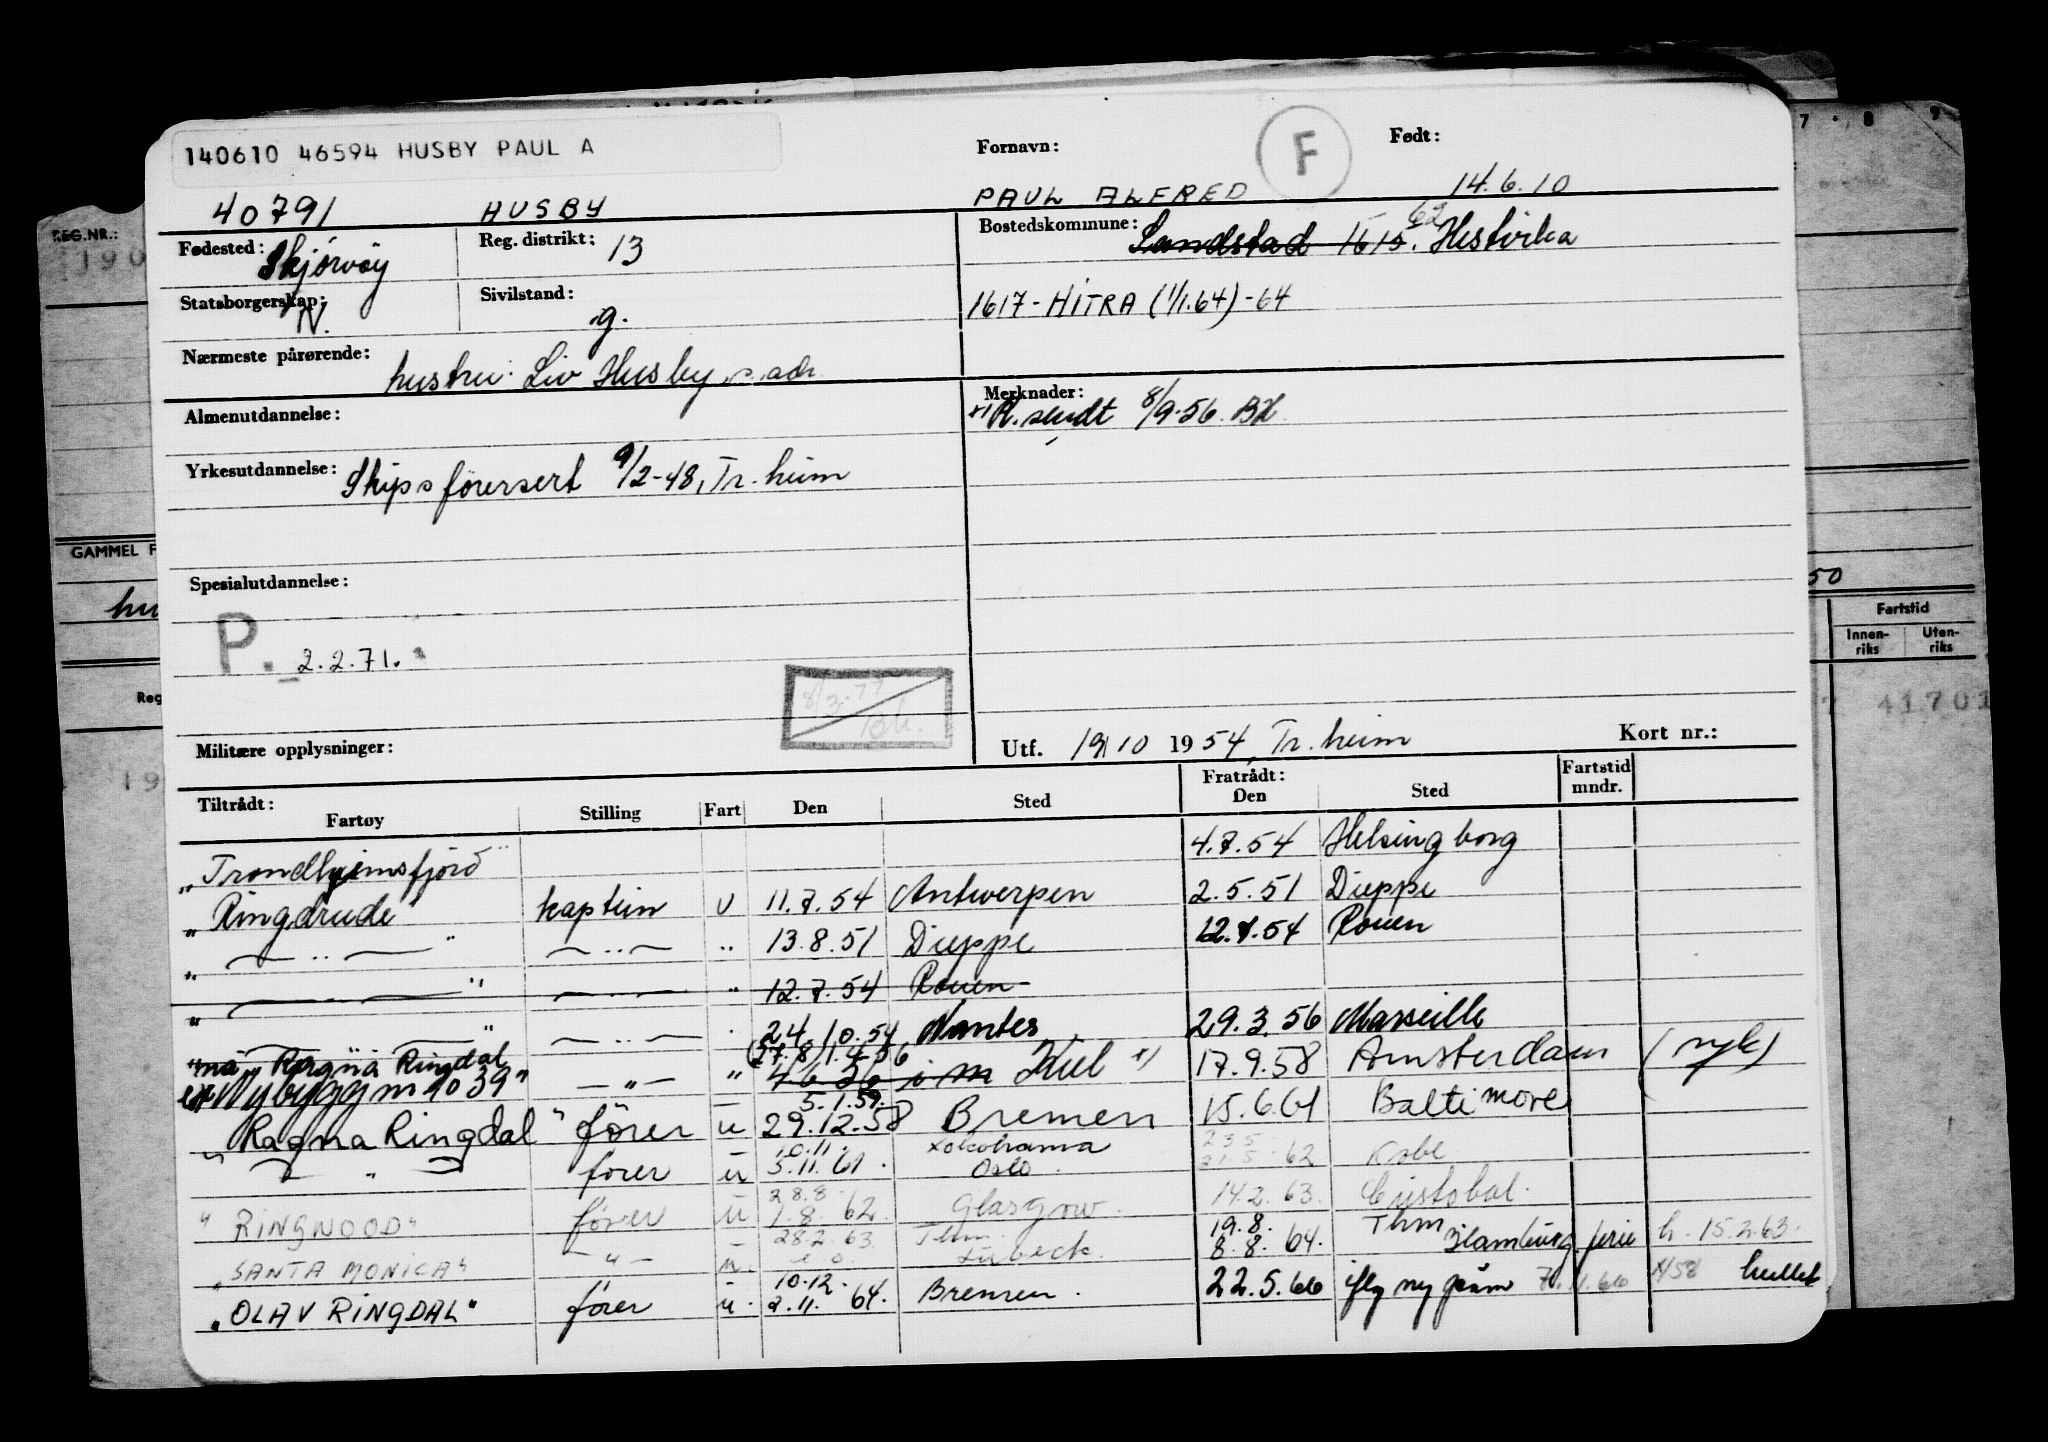 140610 46594 HUSBY PAUL A
Fornavn: F Født:
40791 HUSBY PAUL ALFRED 14.6.10
Fødested: Skjørvøy Reg. distrikt: 13 Bostedskommune: Sandstad 1615. 62 Hestvika
Statsborgerskap: N. Sivilstand: g. 1617 - HITRA (1/1.64) - 64
Nærmeste pårørende: hustru: Liv Husby s. adr.
Almenutdannelse: Merknader:
x) R. sendt 8/9-56. BH
Yrkesutdannelse: Skipsførersert 9/2-48, Tr. heim
Spesialutdannelse:
P. 2.2.71.
8/3-77
Bh.
Militære opplysninger: Utf. 19/10 1954 Tr. heim Kort nr.:
Tiltrådt: Fartøy Stilling Fart Den Sted Fratrådt: Den Sted Fartstid mndr.
"Trondhjemsfjord" 4.7.54 Helsingborg
"Ringdrude" kaptein U 11.7.54 Antwerpen 2.5.51 Dieppe
" — " — " — " — " 13.8.51 Dieppe 12.7.54 Rouen
" — " — " — " — " 12.7.54 Rouen
" — " — " — " — " 24.10.54 Nantes 29.3.56 Marseille
nå "Ragna Ringdal (27.8)
ex Nybygg nr 1039" — " — " 4.6.56 i m Kiel x) 17.9.58 Amsterdam (syk)
5.1.59.
"Ragna Ringdal" fører u 29.12.58 Bremen 15.6.61 Baltimore
10.11. Yokohama 23.5
— " — fører u 3.11.61. Oslo. 21.5.62 Kobe
28.8.
"RINGWOOD" fører u 1.8.62. Glasgow. 14.2.63. Cristobal.
28.2.63 Thm. 19.8. Thm
"SANTA MONICA" — " — u. Lübeck. 8.8.64. Hamburg ferie h. 15.2.63.
10.12.
"OLAV RINGDAL" fører u. 2.11.64. Bremen. 22.5.66
REG.NR.:
190
GAMMEL F
hu
Reg
19
7 . 8 9
50
Fartstid
Innenriks Utenriks
41701